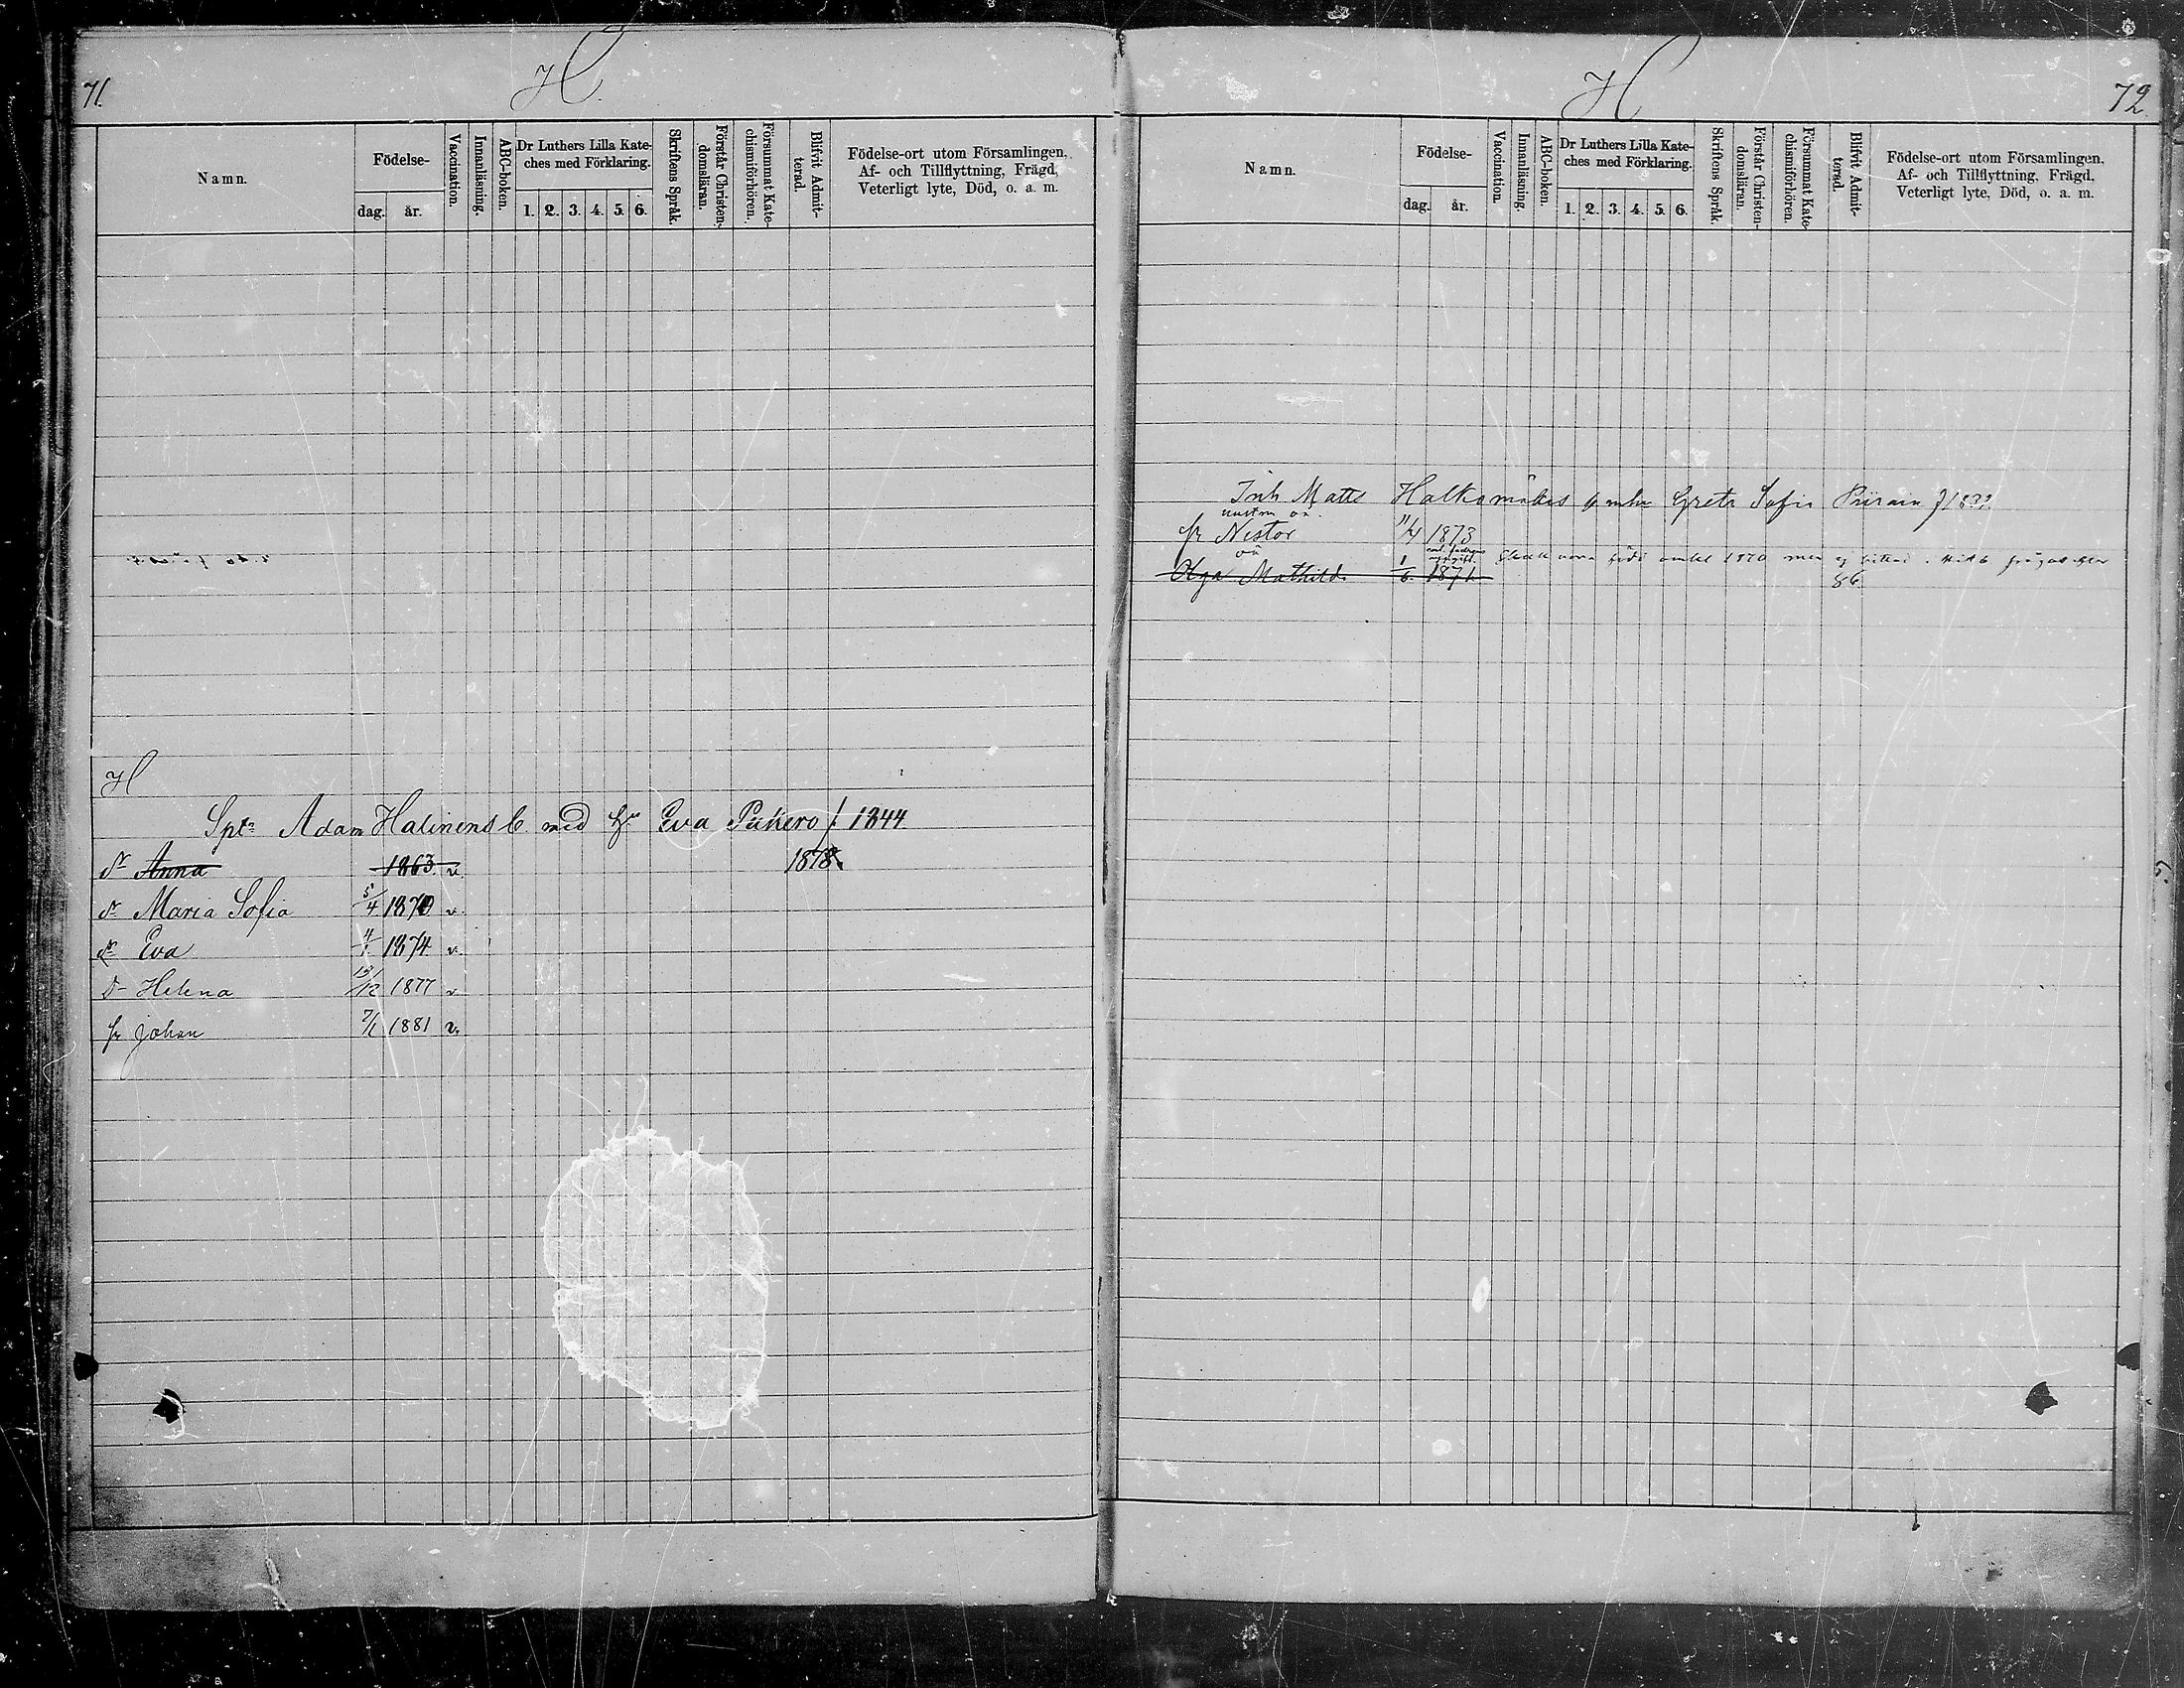 71.
H.
Namn.
Födelse-
dag.
år.
Vaccination.
Innanläsning.
ABC-boken.
Dr Luthers Lilla Kate-
ches med Förklaring.
1. 2. 3. 4. 5. 6.
Skriftens Språk.
Förstår Christen-
domsläran.
Försummat Kate-
chismiförhören.
Blifvit Admit-
terad.
Födelse-ort utom Församlingen,
Af- och Tillflyttning, Frägd,
Veterligt lyte, Död, o. a. m.
H
Adam Halinens b. med Eva Piikero f. 1844
Anna 1863. v. 1878
Maria Sofia 5/4 1870 v.
Eva 4/1 1874 v.
Helena 13/12 1877 v
Johan 7/1 1881 v.
H
72
Namn.
Födelse-
dag.
år.
Vaccination.
Innanläsning.
ABC-boken.
Dr Luthers Lilla Kate-
ches med Förklaring.
1. 2. 3. 4. 5. 6.
Skriftens Språk.
Förstår Christen-
domsläran.
Försummat Kate-
chismiförhören.
Blifvit Admit-
terad.
Födelse-ort utom Församlingen,
Af- och Tillflyttning, Frägd,
Veterligt lyte, Död, o. a. m.
Inh Matts Greta Sofia f 1832
Nestor 11/4 1873
född 1870 men ej
Olga Mathilda 1/6 1871
86.